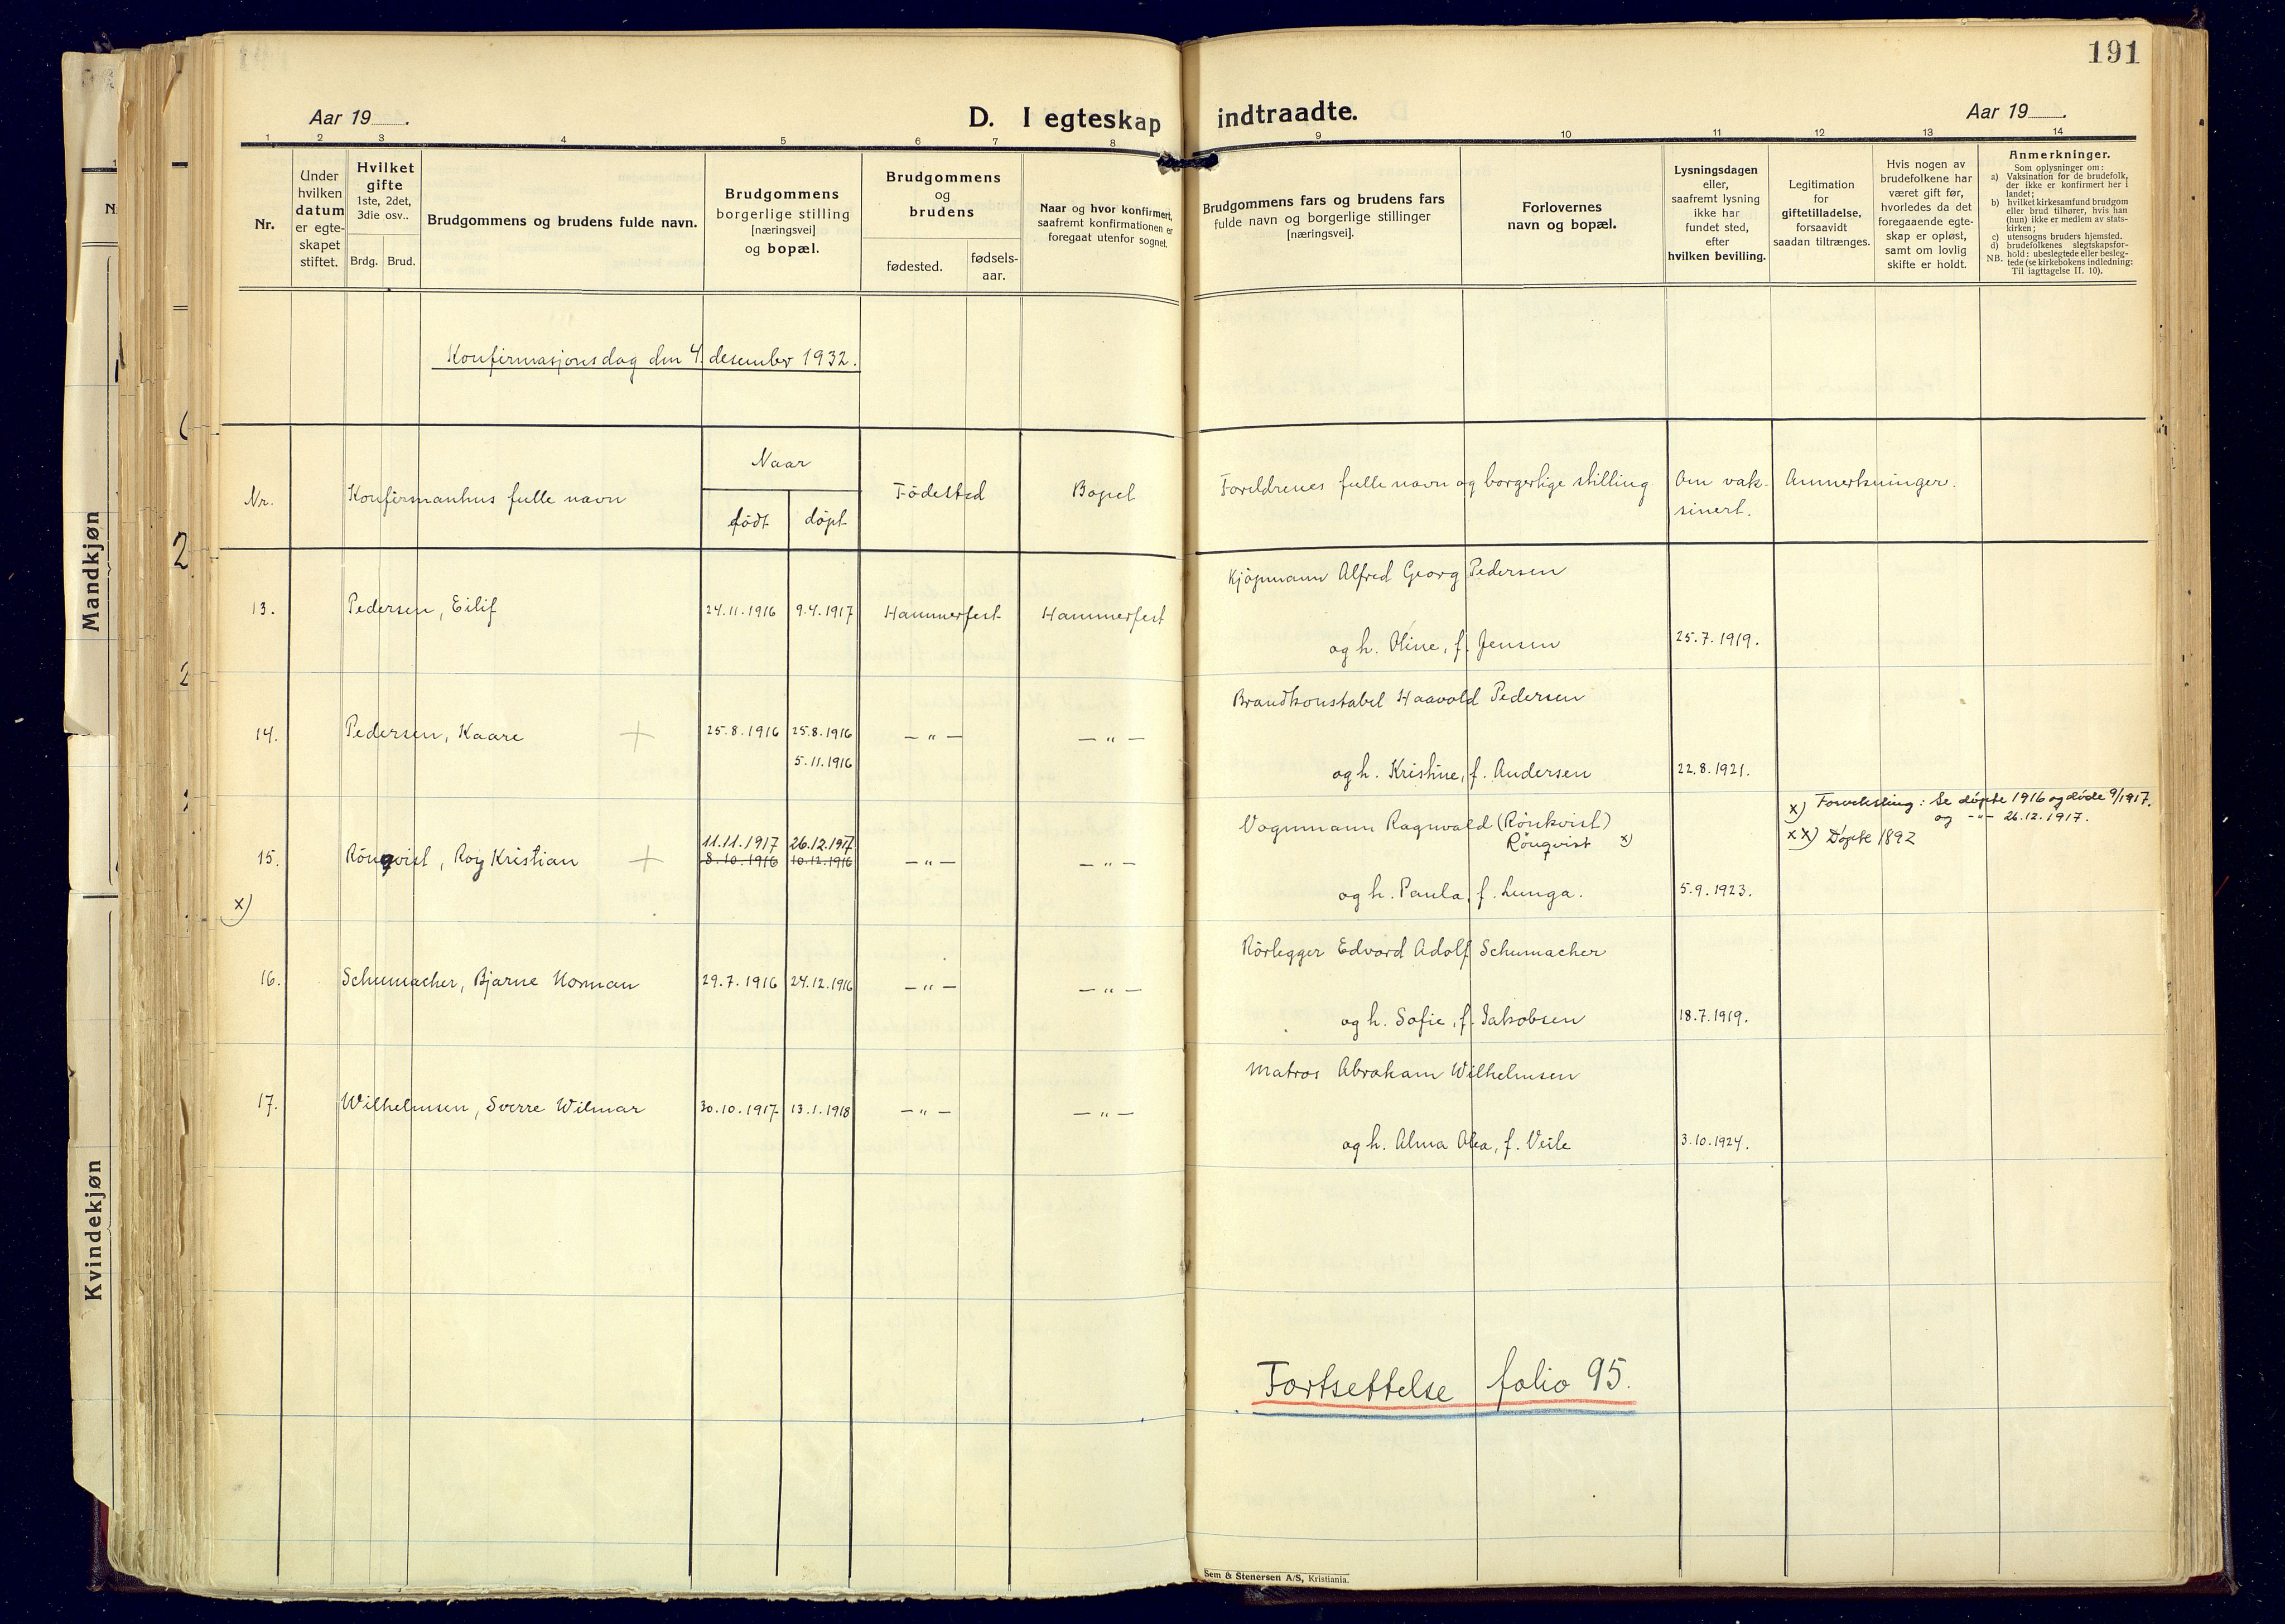 191
Aar 19 .
D. I egteskap indtraadte.
Aar 19 .
1 2 3 4 5 6 7 8 9 10 11 12 13 14
Nr.
Under
hvilken
datum
er egte-
skapet
stiftet.
Hvilket
gifte
1ste, 2det,
3die osv..
Brdg. Brud.
Brudgommens og brudens fulde navn.
Brudgommens
borgerlige stilling
[næringsvei]
og bopæl.
Brudgommens
og
brudens
fødested.
fødsels-
aar.
Naar og hvor konfirmert,
saafremt konfirmationen er
foregaat utenfor sognet.
Brudgommens fars og brudens fars
fulde navn og borgerlige stillinger
[næringsvei].
Forlovernes
navn og bopæl.
Lysningsdagen
eller,
saafremt lysning
ikke har
fundet sted,
efter
hvilken bevilling.
Legitimation
for
giftetilladelse,
forsaavidt
saadan tiltrænges.
Hvis nogen av
brudefolkene har
været gift før,
hvorledes da det
foregaaende egte-
skap er opløst,
samt om lovlig
skifte er holdt.
Anmerkninger.
Som oplysninger om:
a) Vaksination for de brudefolk,
der ikke er konfirmert her i
landet;
b) hvilket kirkesamfund brudgom
eller brud tilhører, hvis han
(hun) ikke er medlem av stats-
kirken;
c) utensogns bruders hjemsted.
d) brudefolkenes slegtskapsfor-
hold: ubeslegtede eller besleg-
NB. tede (se kirkebokens indledning:
Til iagttagelse II. 10).
Mandkjøn
Kvindekjøn
Konfirmasjonsdag den 4. desember 1932.
Nr.
Konfirmanhus fulle navn
Naar
født døpt
Födested
Bopel
Foreldrenes fulle navn og borgerlige stilling
Om vak-
sinert.
Anmerkninger.
Kjöpmann Alfred Georg Pedersen
13. Pedersen, Eilif 24.11.1916 9.4.1917 Hammerfest Hammerfest
og h. Oline, f. Jensen 25.7.1919.
Brandkonstabel Haavold Pedersen
14. Pedersen, Kaare + 25.8.1916 25.8.1916 — " — — " —
5.11.1916
og h. Kristine, f. Andersen 22.8.1921.
x) Forveksling: Se døpte 1916 og døde 9/1917.
og -"- 26.12.1917.
Vognmann Ragnvald (Rönkvist)
Rönqvist x)
xx) Døpte 1892
11.11.1917 26.12.1917
15. Rönqvist, Roy Kristian + 8.10.1916 10.12.1916 — " — — " —
x)
og h. Paula, f. Lunga. 5.9.1923.
Rörlegger Edvard Adolf Schumacher
16. Schumacher, Bjarne Norman 29.7.1916 24.12.1916 — " — — " —
og h. Sofie, f. Jakobsen 18.7.1919.
Matros Abraham Wilhelmsen
17. Wilhelmsen, Sverre Wilmar 30.10.1917 13.1.1918 — " — — " —
og h. Alma Alea, f. Veile 3.10.1924.
Fortsettelse folio 95.
Sem & Stenersen A/S, Kristiania.